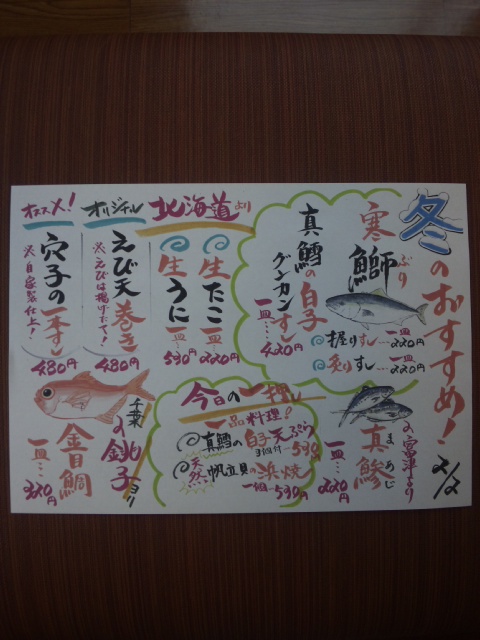 冬のおすすめ！
2/2
寒鰤
ぶり
握りすし…一皿220円
炙りすし…一皿220円
真鱈の白子
グンカンすし
一皿…420円
北海道より
生たこ 一皿…220円
生うに 一皿…530円
オリジナル
えび天巻き
※えびは揚げたて！
480円
オススメ！
穴子の一本すし
※自家製仕上！
480円
富津より
真鯵
まあじ
一皿…220円
今日の一押し
一品料理！
真鱈の白子天ぷら
3個付…530円
天然 帆立貝の浜焼
一個…530円
千葉の銚子ヨリ
金目鯛
一皿…320円